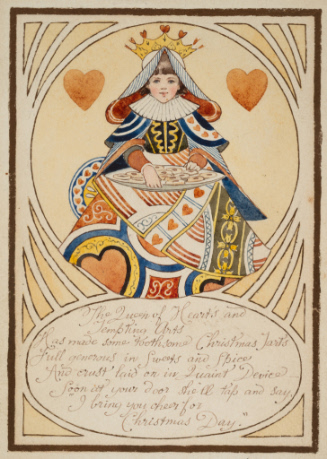 The Queen of Hearts and
Tempting Arts
Has made some toothsome Christmas Tarts
Full generous in Sweets and Spice
And crust laid on in Quaint Device
Soon at your door she'll tap and say,
I bring you cheer for
Christmas Day."